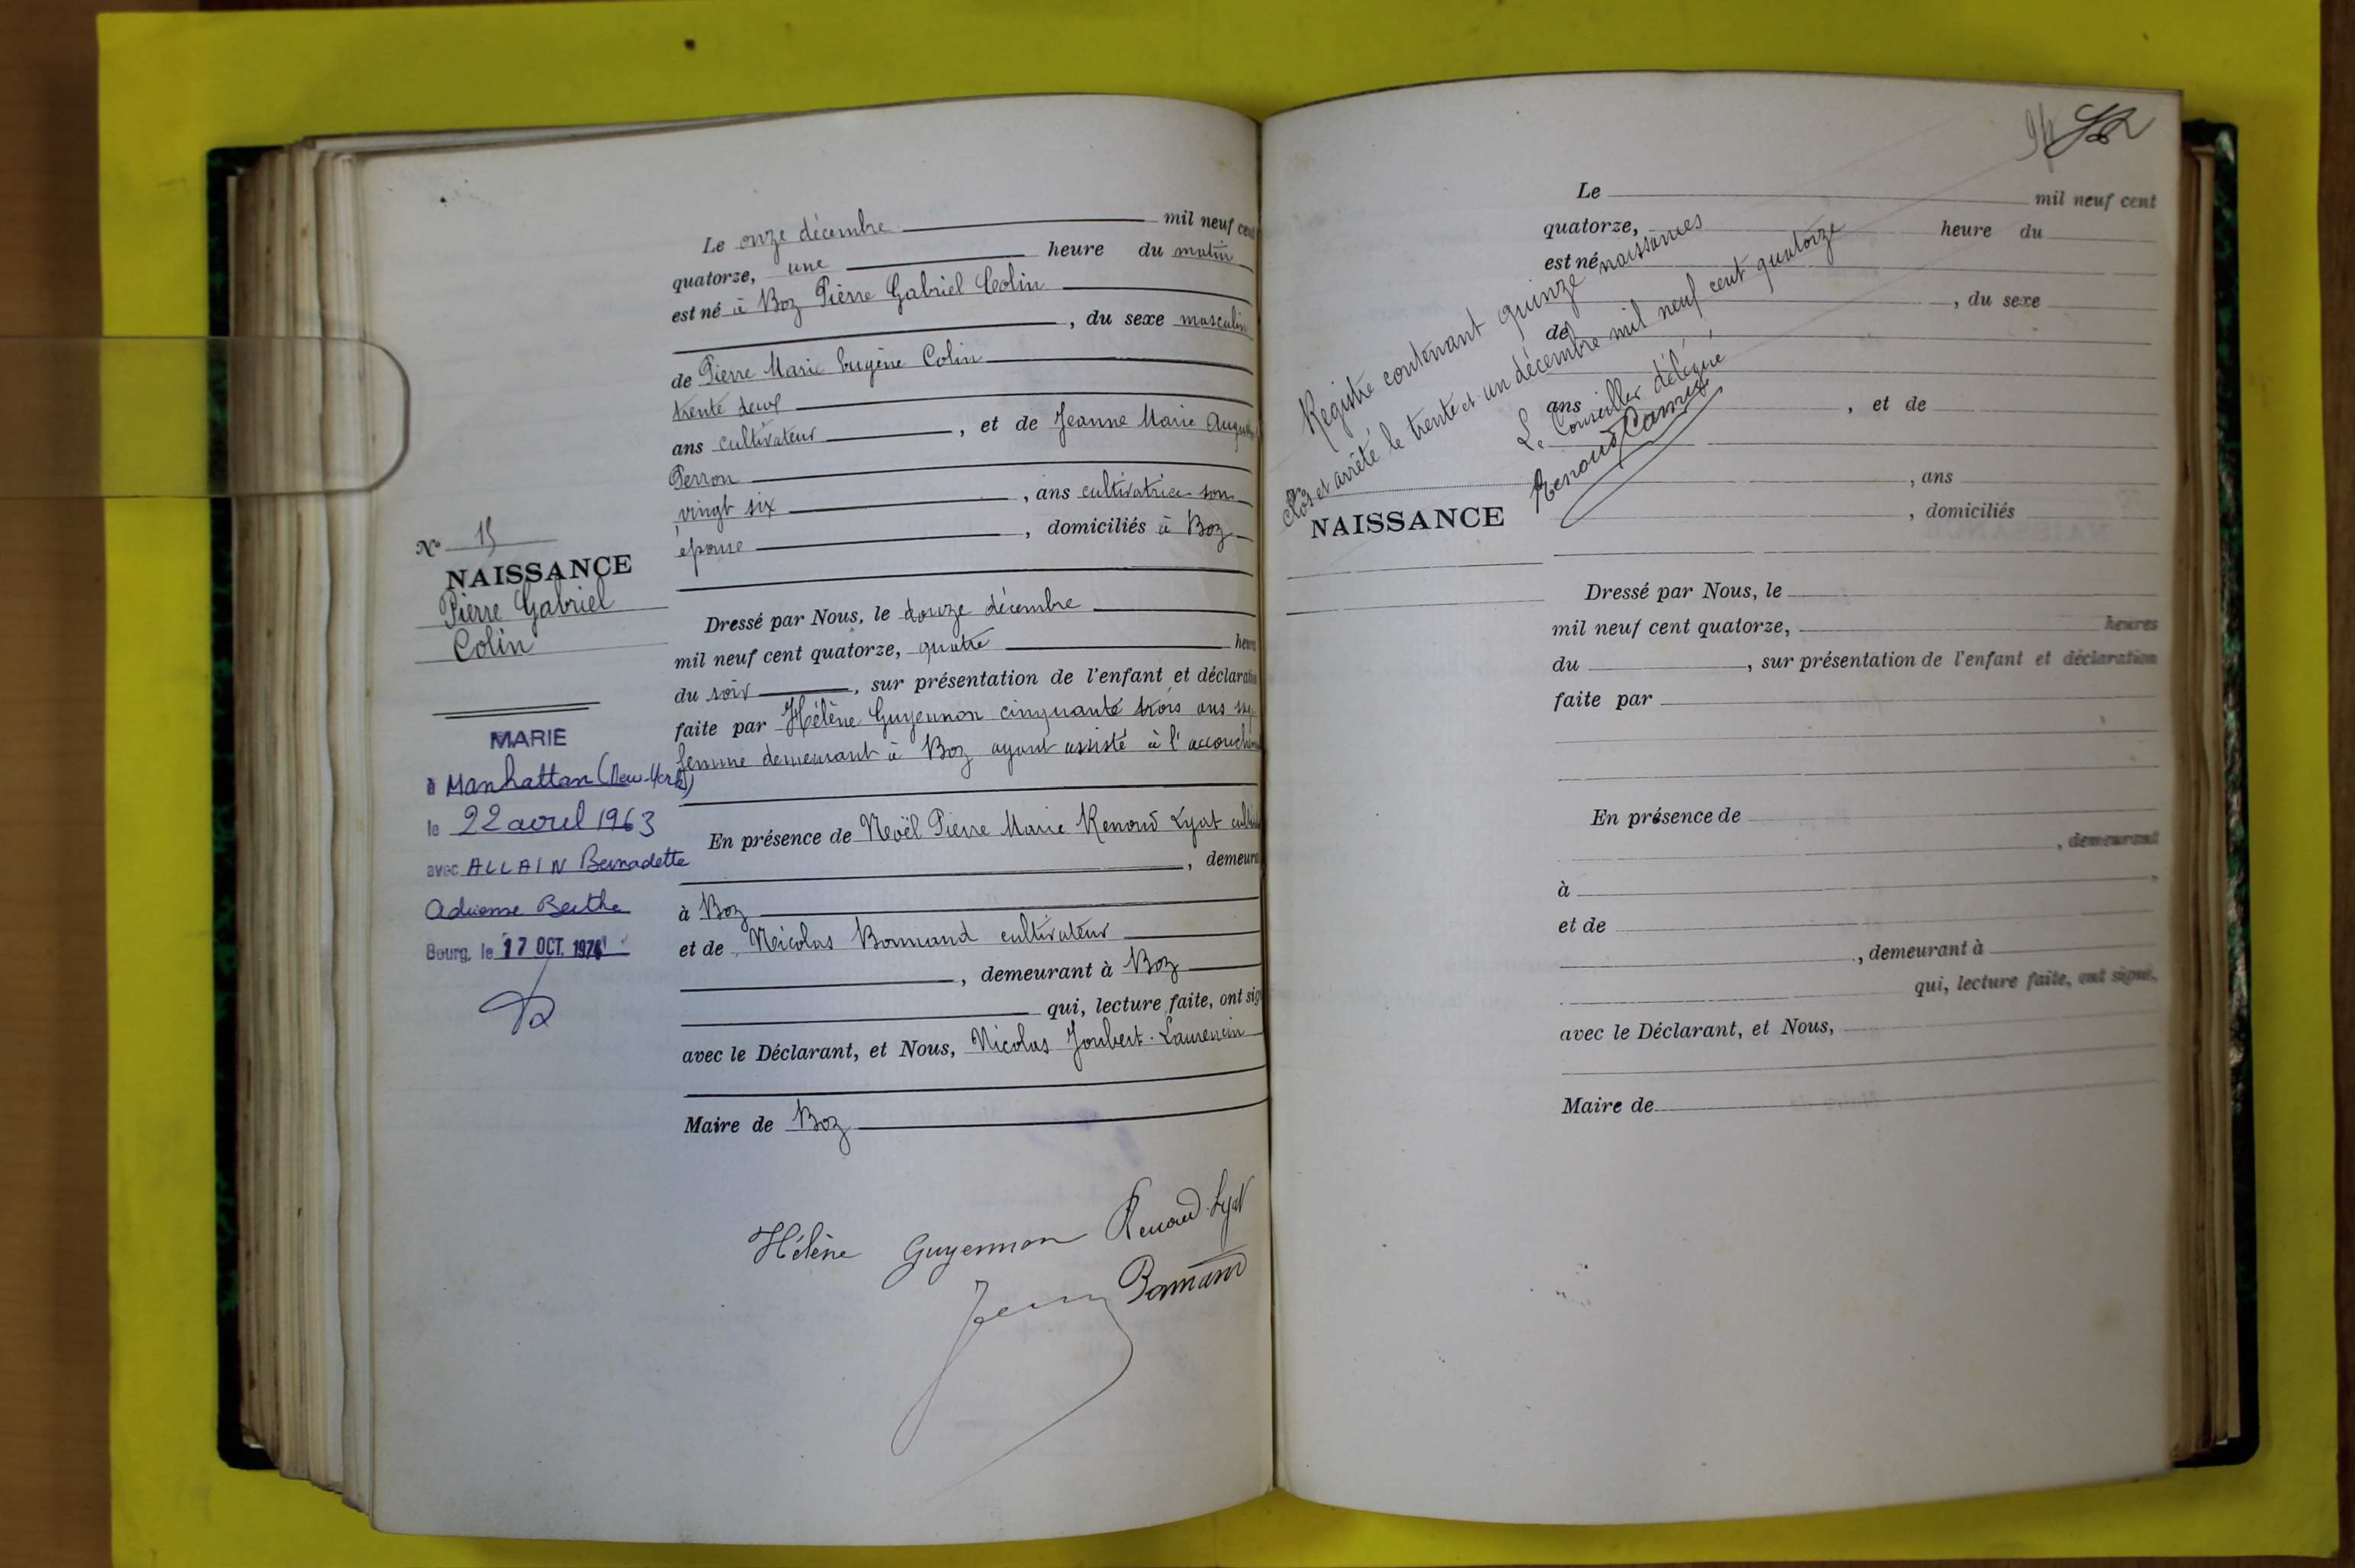 Le onze décembre mil neuf cent
quatorze, une heure du matin
est né à Boz Pierre Gabriel Colin
, du sexe masculin
de Pierre Marie Eugène Colin
trente deux
ans cultivateur , et de Jeanne Marie
Perron
vingt six , ans cultivatrice son
épouse , domiciliés à Boz
N° 15
NAISSANCE
Pierre Gabriel
Colin
Dressé par Nous, le douze décembre
mil neuf cent quatorze, quatre heures
du soir , sur présentation de l'enfant et déclaration
faite par Hélène Guyennon cinquante trois ans
femme demeurant à Boz ayant assisté à l'
En présence de Noël Pierre Marie Renoud Lyat
, demeurant
à Boz
et de Nicolas Bornand cultivateur
, demeurant à Boz
qui, lecture faite, ont
avec le Déclarant, et Nous, Nicolas Joubert-Laurencin
Maire de Boz
MARIE
à Manhattan (New-York)
le 22 avril 1963
avec ALLAIN Bernadette
Adrienne Berthe
Bourg, le 17 OCT. 1974
Hélène Guyennon Renoud-Lyat
Le mil neuf cent
quatorze, heure du
est né
, du sexe
de
ans , et de
, ans
, domiciliés
Registre contenant quinze naissances
clos et arrêté le trente et un décembre mil neuf cent quatorze
Le Conseiller délégué
NAISSANCE
Dressé par Nous, le
mil neuf cent quatorze, heures
du , sur présentation de l'enfant et déclaration
faite par
En présence de
, demeurant
à ,
et de
, demeurant à
qui, lecture faite, ont signé,
avec le Déclarant, et Nous,
Maire de